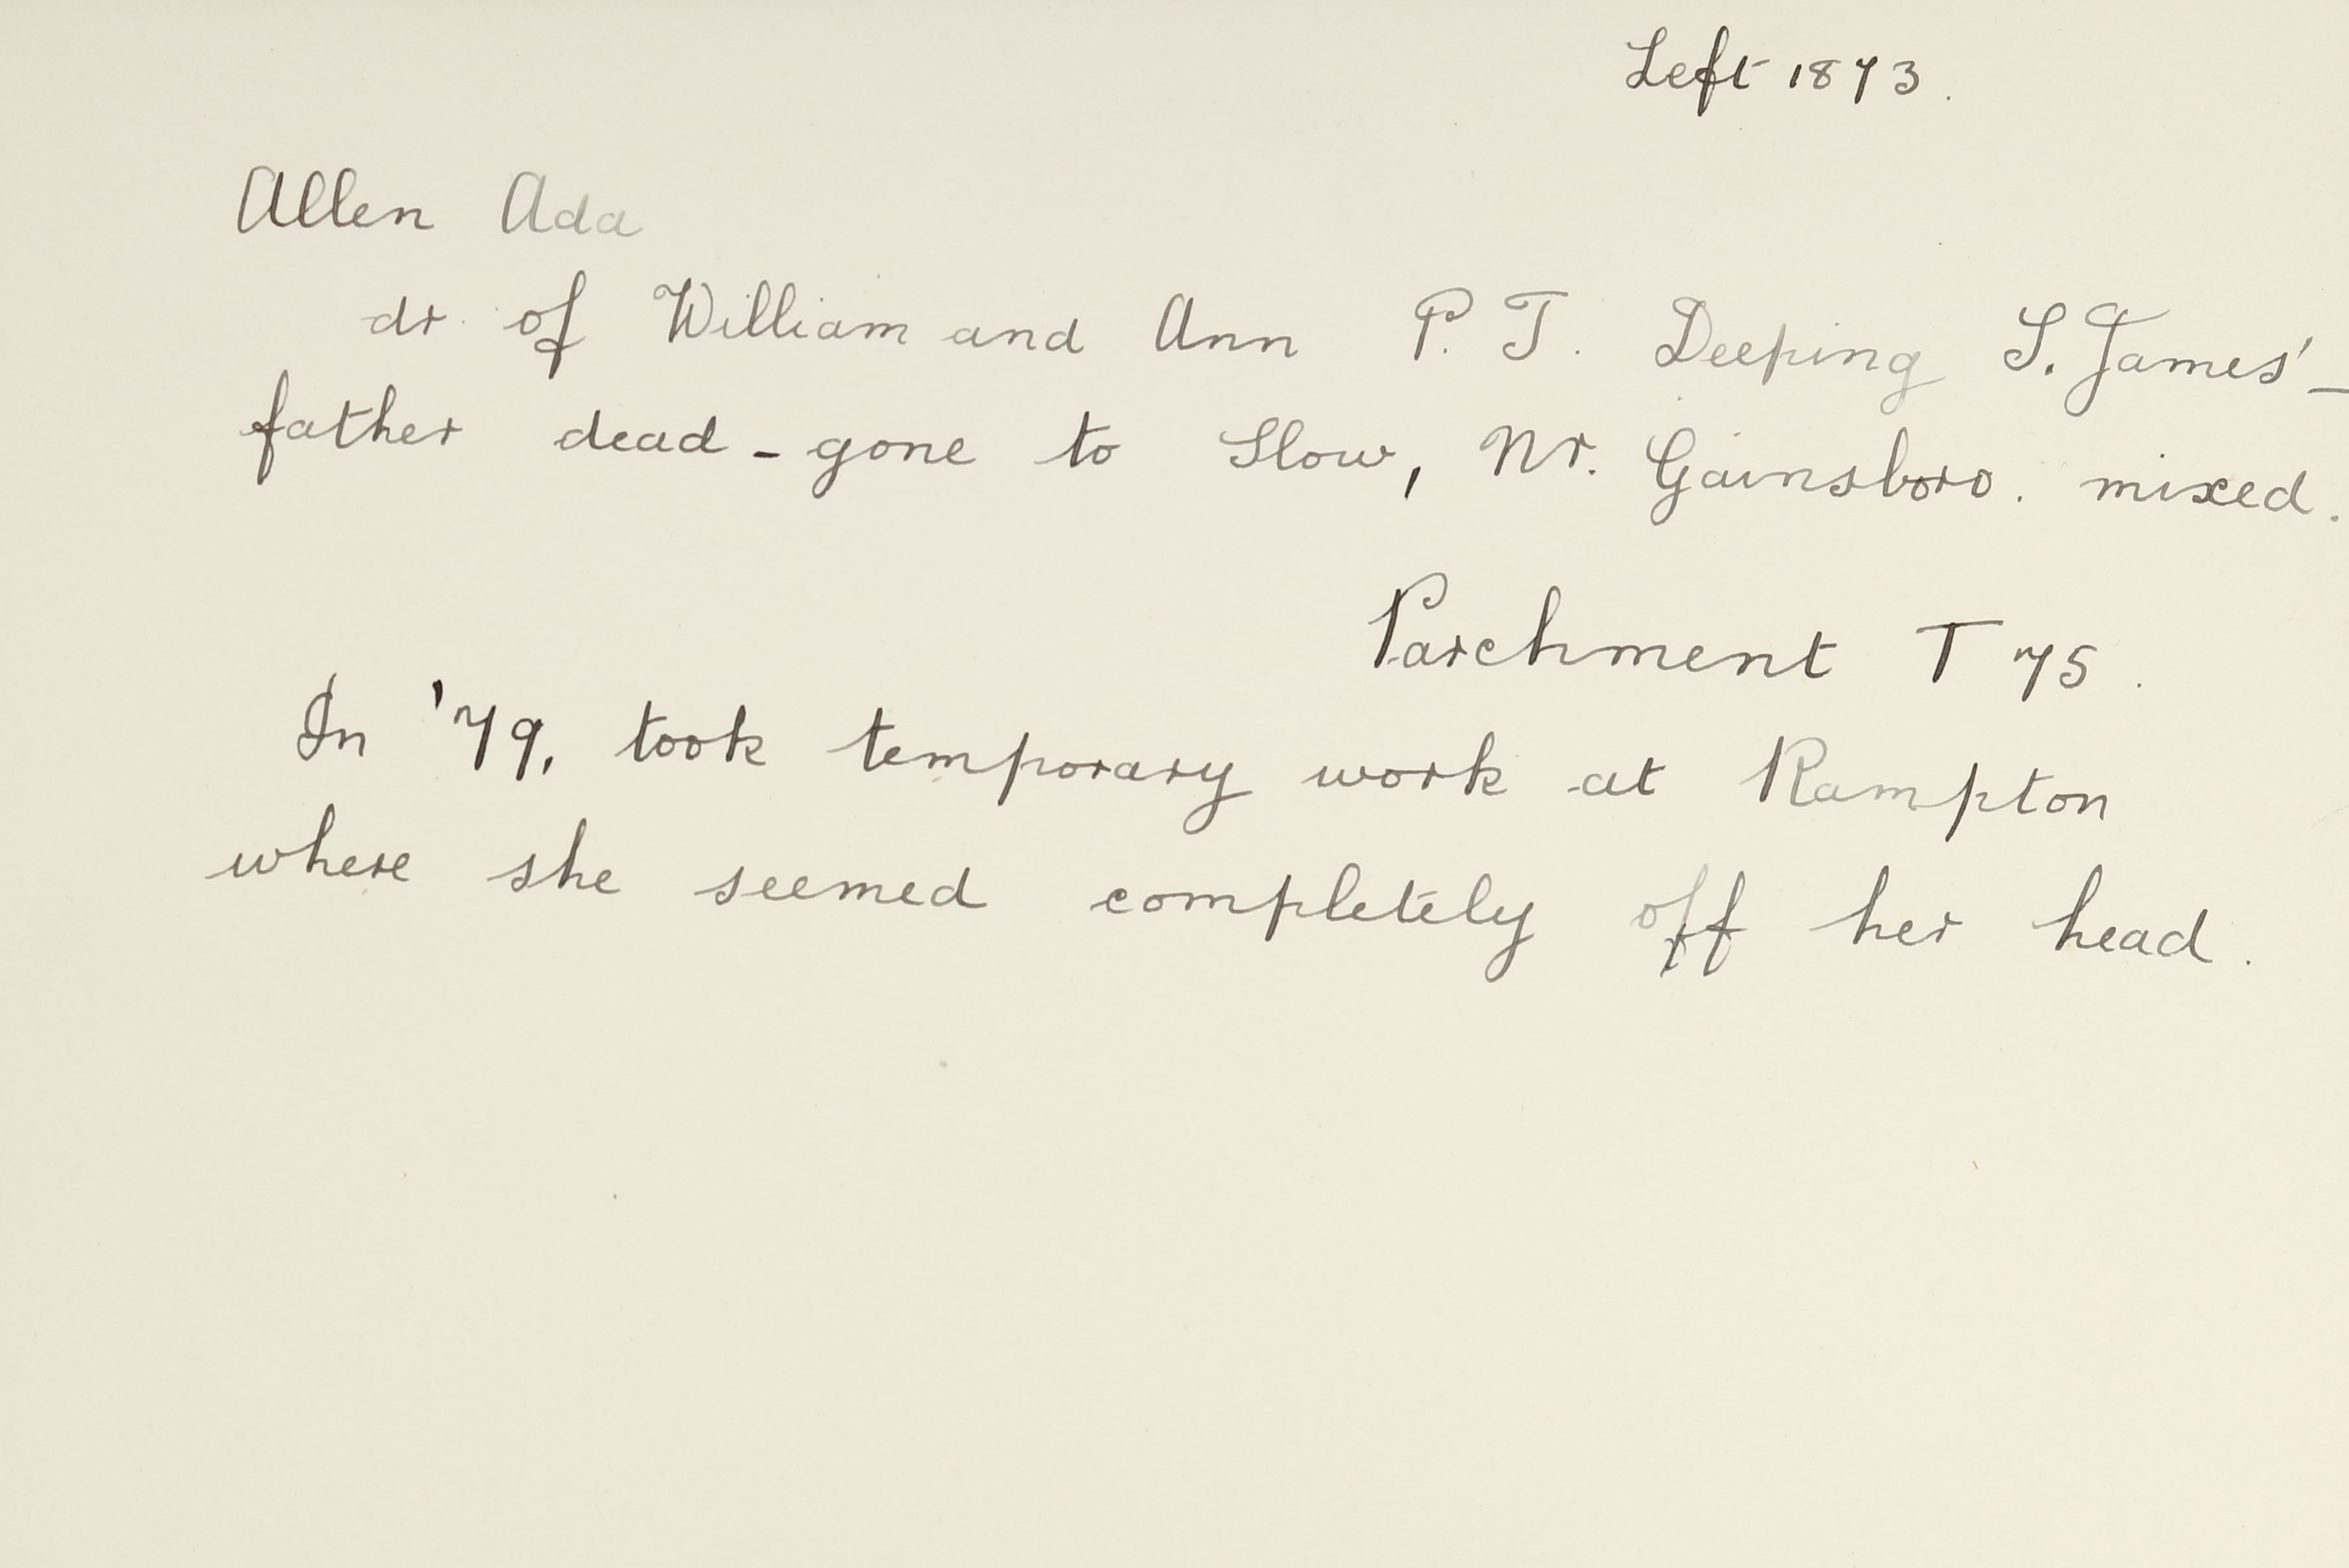 Left 1873.
Allen Ada
dr. of William and Ann P. T. Deeping S. James' -
father dead - gone to Slow, Nr. Gainsboro. mixed.
Parchment T 75.
In '79, took temporary work at Rampton
where she seemed completely off her head.